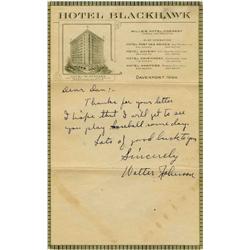 HOTEL BLACKHAWK
DAVENPORT IOWA
Dear Dan:-
Thanks for your letter
I hope that I will get to see
you play baseball some day.
Lots of good luck to you
Sincerely
Walter Johnson